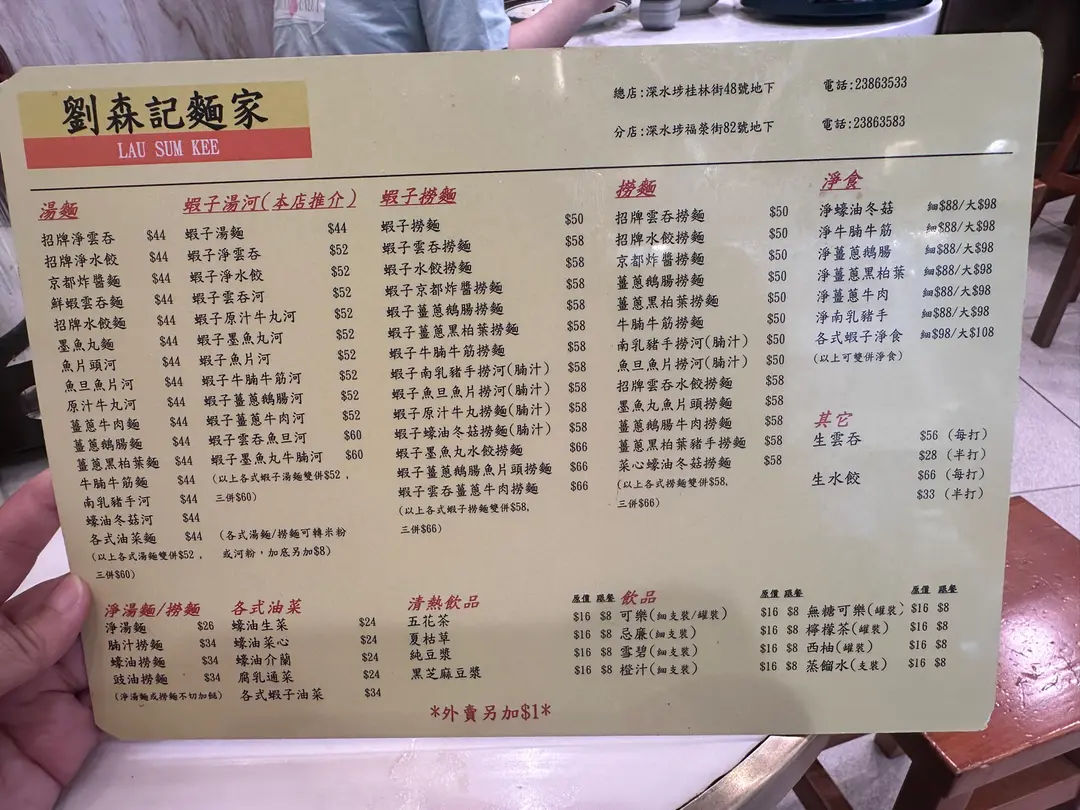 劉森記麵家
LAU SUM KEE
總店:深水埗桂林街48號地下 電話:23863533
分店:深水埗福榮街82號地下 電話:23863583
湯麵
招牌淨雲吞 $44
招牌淨水餃 $44
京都炸醬麵 $44
鮮蝦雲吞麵 $44
招牌水餃麵 $44
墨魚丸麵 $44
魚片頭河 $44
魚旦魚片河 $44
原汁牛丸河 $44
薑蔥牛肉麵 $44
薑蔥鵝腸麵 $44
薑蔥黑柏葉麵 $44
牛腩牛筋麵 $44
南乳豬手河 $44
蠔油冬菇河 $44
各式油菜麵 $44
(以上各式湯麵雙併$52,
三併$60)
蝦子湯河(本店推介)
蝦子湯麵 $44
蝦子淨雲吞 $52
蝦子淨水餃 $52
蝦子雲吞河 $52
蝦子原汁牛丸河 $52
蝦子墨魚丸河 $52
蝦子魚片河 $52
蝦子牛腩牛筋河 $52
蝦子薑蔥鵝腸河 $52
蝦子薑蔥牛肉河 $52
蝦子雲吞魚旦河 $60
蝦子墨魚丸牛腩河 $60
(以上各式蝦子湯麵雙併$52,
三併$60)
(各式湯麵/撈麵可轉米粉
或河粉,加底另加$8)
蝦子撈麵
蝦子撈麵 $50
蝦子雲吞撈麵 $58
蝦子水餃撈麵 $58
蝦子京都炸醬撈麵 $58
蝦子薑蔥鵝腸撈麵 $58
蝦子薑蔥黑柏葉撈麵 $58
蝦子牛腩牛筋撈麵 $58
蝦子南乳豬手撈河(腩汁) $58
蝦子魚旦魚片撈河(腩汁) $58
蝦子原汁牛丸撈麵(腩汁) $58
蝦子蠔油冬菇撈麵(腩汁) $58
蝦子墨魚丸水餃撈麵 $66
蝦子薑蔥鵝腸魚片頭撈麵 $66
蝦子雲吞薑蔥牛肉撈麵 $66
(以上各式蝦子撈麵雙併$58,
三併$66)
撈麵
招牌雲吞撈麵 $50
招牌水餃撈麵 $50
京都炸醬撈麵 $50
薑蔥鵝腸撈麵 $50
薑蔥黑柏葉撈麵 $50
牛腩牛筋撈麵 $50
南乳豬手撈河(腩汁) $50
魚旦魚片撈河(腩汁) $50
招牌雲吞水餃撈麵 $58
墨魚丸魚片頭撈麵 $58
薑蔥鵝腸牛肉撈麵 $58
薑蔥黑柏葉豬手撈麵 $58
菜心蠔油冬菇撈麵 $58
(以上各式撈麵雙併$58,
三併$66)
淨食
淨蠔油冬菇 細$88/大$98
淨牛腩牛筋 細$88/大$98
淨薑蔥鵝腸 細$88/大$98
淨薑蔥黑柏葉 細$88/大$98
淨薑蔥牛肉 細$88/大$98
淨南乳豬手 細$88/大$98
各式蝦子淨食 細$98/大$108
(以上可雙併淨食)
其它
生雲吞 $56 (每打)
$28 (半打)
生水餃 $66 (每打)
$33 (半打)
淨湯麵/撈麵
淨湯麵 $26
腩汁撈麵 $34
蠔油撈麵 $34
豉油撈麵 $34
(淨湯麵或撈麵不切加餸)
各式油菜
蠔油生菜 $24
蠔油菜心 $24
蠔油介蘭 $24
腐乳通菜 $24
各式蝦子油菜 $34
清熱飲品 原價 跟餐
五花茶 $16 $8
夏枯草 $16 $8
純豆漿 $16 $8
黑芝麻豆漿 $16 $8
飲品 原價 跟餐 原價 跟餐
可樂(細支裝/罐裝) $16 $8 無糖可樂(罐裝) $16 $8
忌廉(細支裝) $16 $8 檸檬茶(罐裝) $16 $8
雪碧(細支裝) $16 $8 西柚(罐裝) $16 $8
橙汁(細支裝) $16 $8 蒸餾水(支裝) $16 $8
*外賣另加$1*